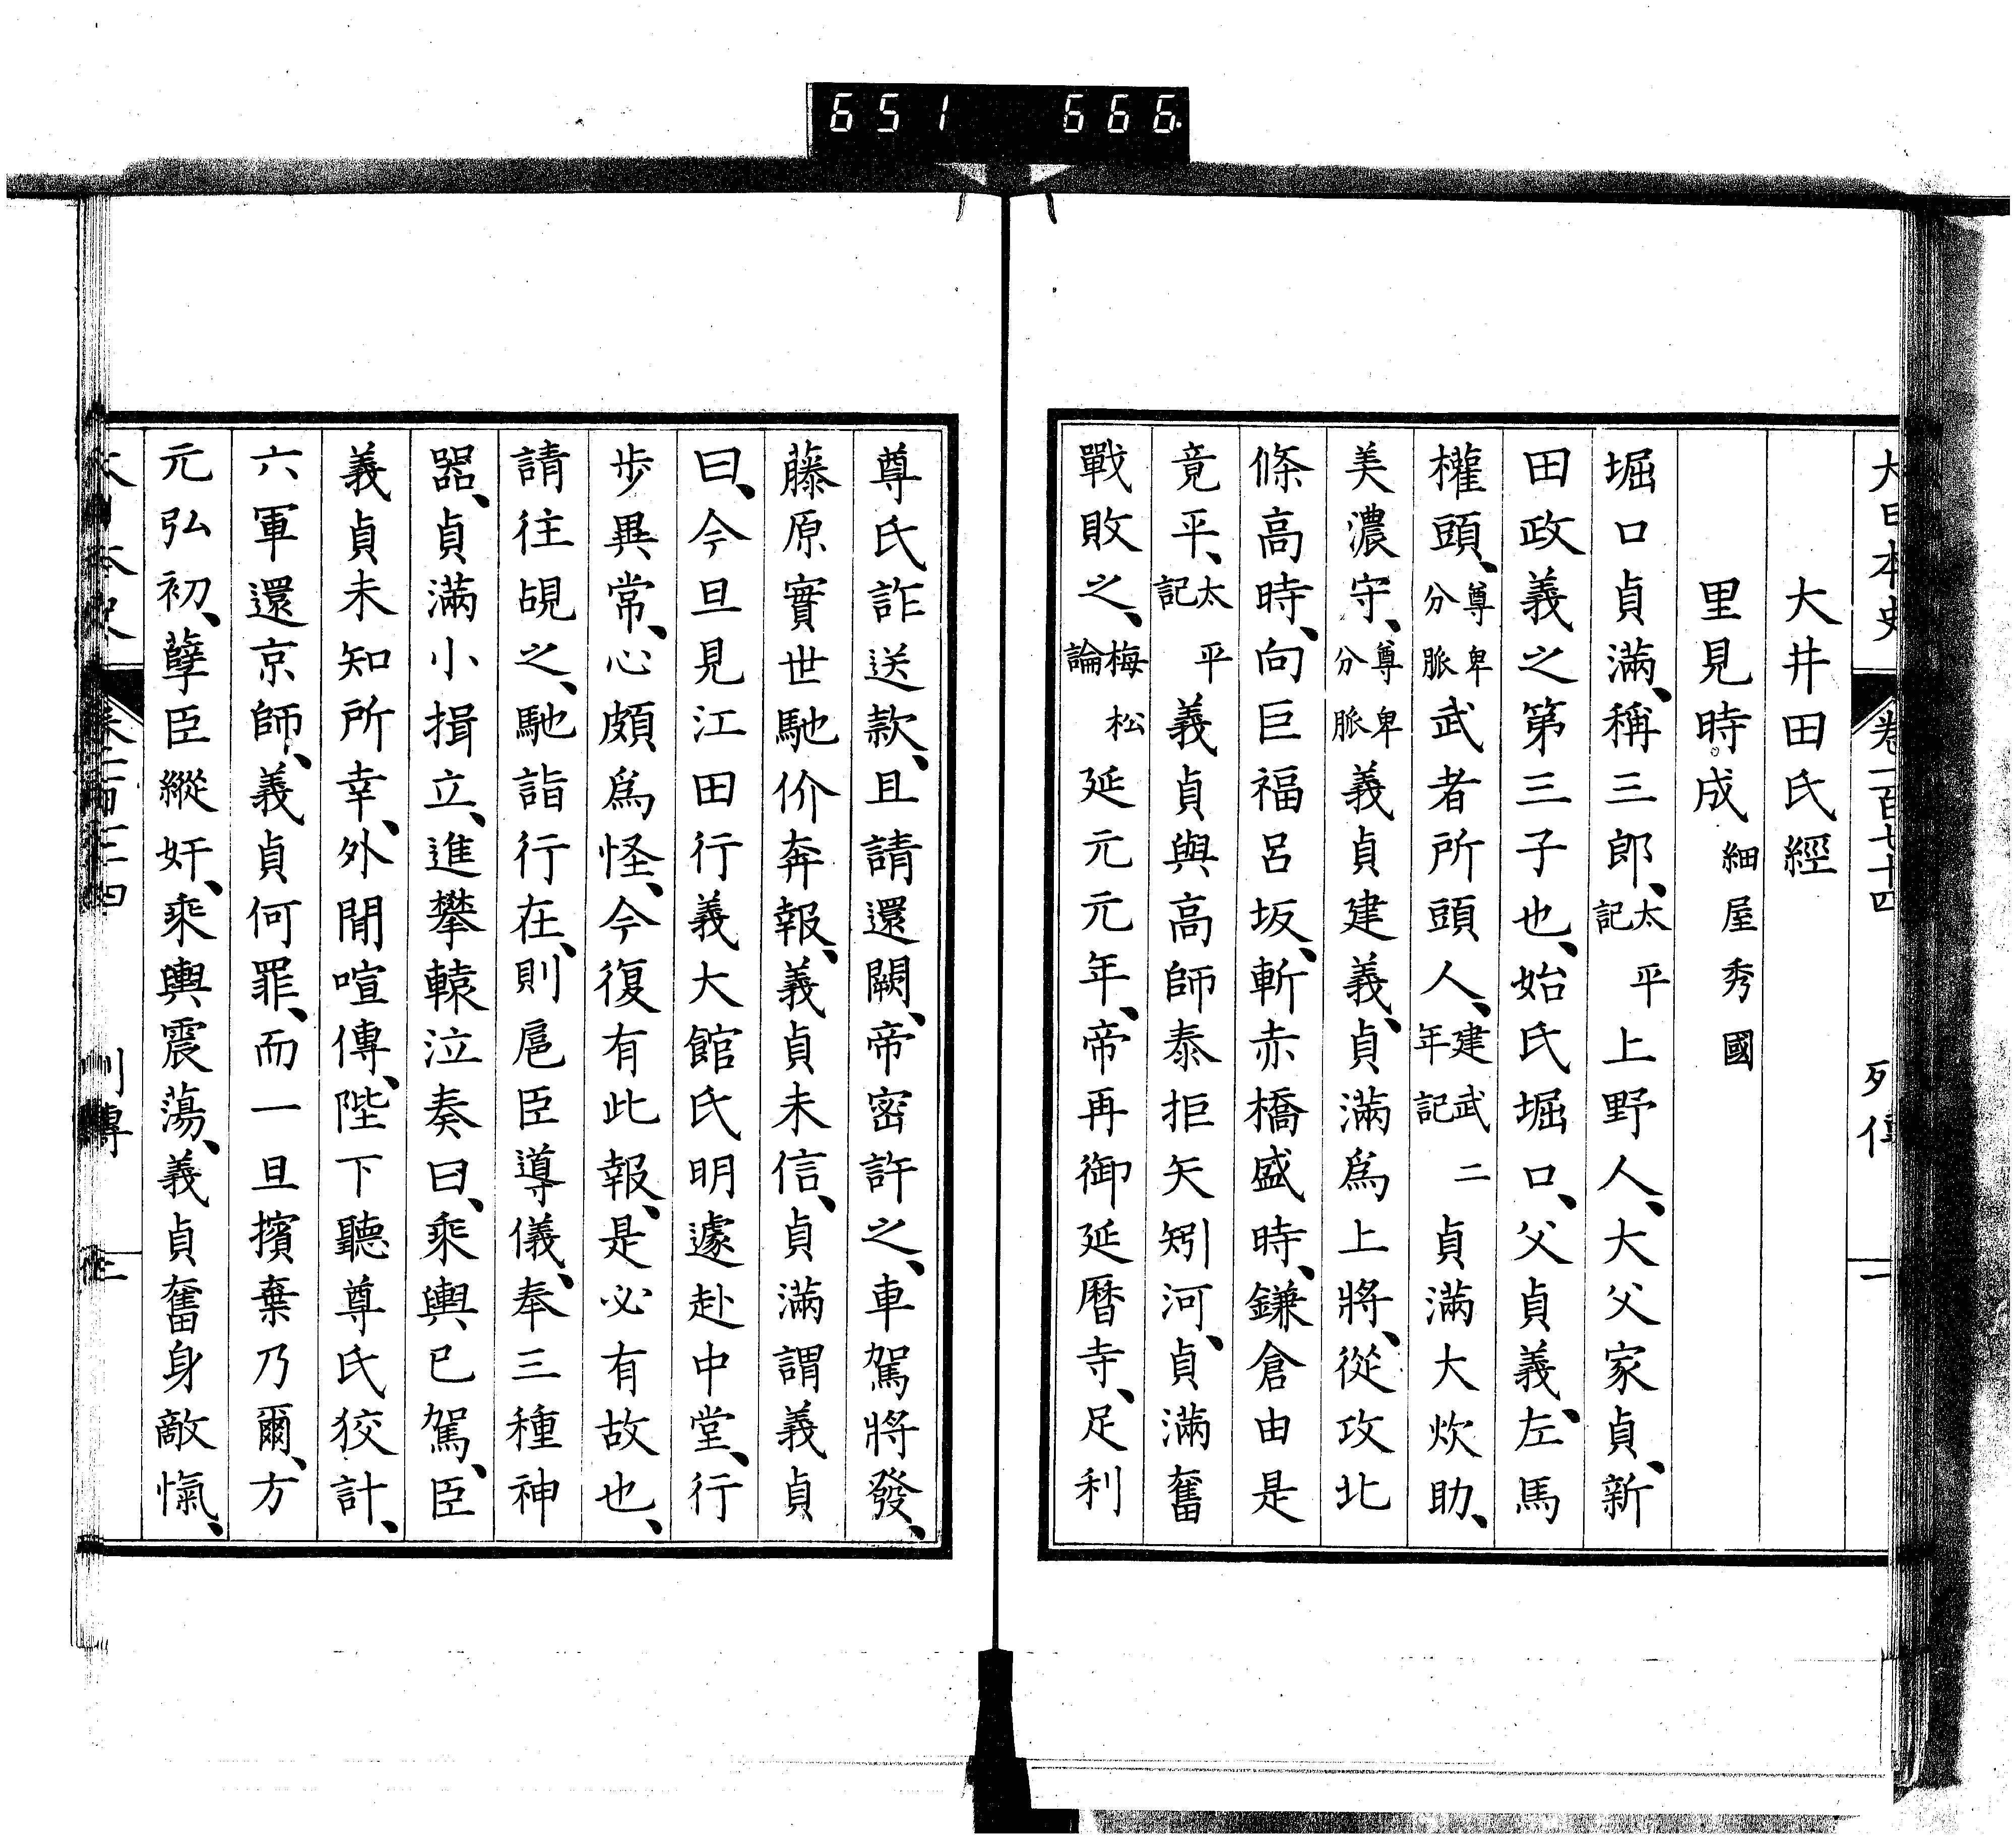 651 666
大日本史 卷一百七十四 列傳 一
大井田氏經
里見時成 細屋秀國
堀口貞滿、稱三郎、太平記上野人、大父家貞、新
田政義之第三子也、始氏堀口、父貞義、左馬
權頭、尊卑分脈武者所頭人、建武二年記貞滿大炊助、
美濃守、尊卑分脈義貞建義、貞滿爲上將、從攻北
條高時、向巨福呂坂、斬赤橋盛時、鎌倉由是
竟平、太平記義貞與高師泰拒矢矧河、貞滿奮
戰敗之、梅松論延元元年、帝再御延曆寺、足利
尊氏詐送款、且請還闕、帝密許之、車駕將發、
藤原實世馳价奔報、義貞未信、貞滿謂義貞
曰、今旦見江田行義大館氏明遽赴中堂、行
步異常、心頗爲怪、今復有此報、是必有故也、
請往覘之、馳詣行在、則扈臣導儀、奉三種神
器、貞滿小揖立、進攀轅泣奏曰、乘輿已駕、臣
義貞未知所幸、外閒喧傳、陛下聽尊氏狡計、
六軍還京師、義貞何罪、而一旦擯棄乃爾、方
元弘初、孽臣縱奸、乘輿震蕩、義貞奮身敵愾、